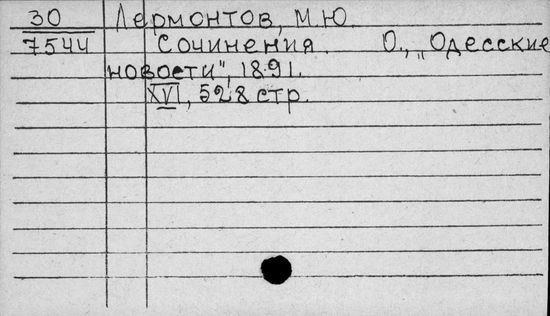 30 Лермонтов, М.Ю.
7544 Сочинения. О., „Одесские
новости", 1891.
XVI, 528 стр.